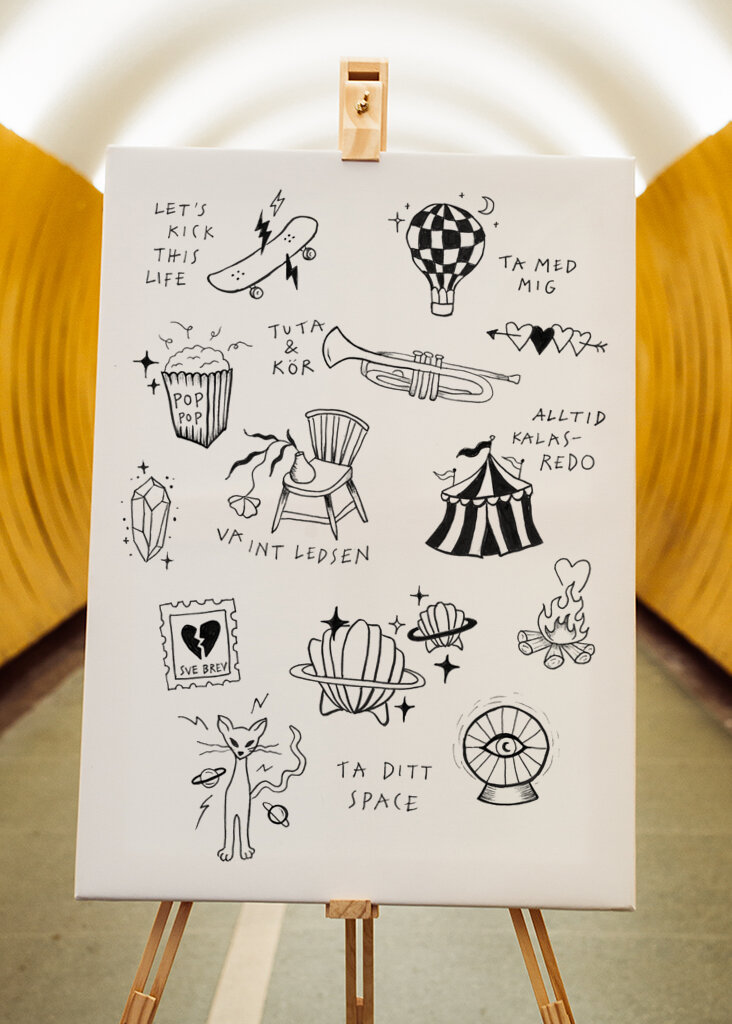 LET'S
KICK
THIS
LIFE
TA MED
MIG
TUTA
&
KÖR
POP
POP
ALLTID
KALAS-
REDO
VA INT LEDSEN
SVE BREV
TA DITT
SPACE